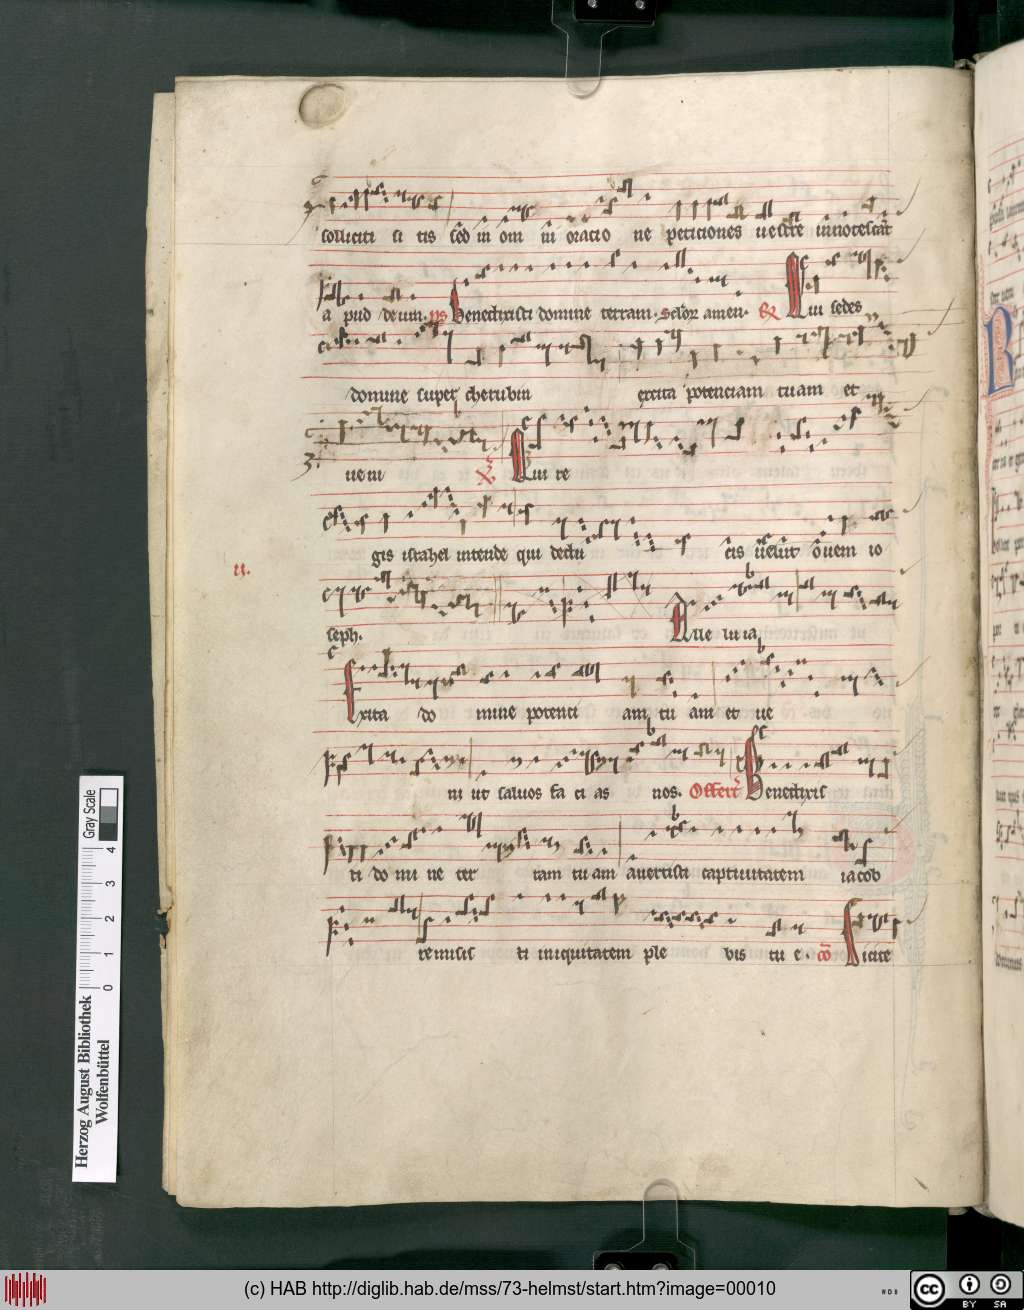 solliciti si tis sed in om̄ ni oracio ne peticiones uestre innotescāt
a pud deum. ps Benedixisti domine terram. sclor amen. Qui sedes
domine super cherubin excita potenciam tuam et
ueni Qui re
gis israhel intende qui dedu cis uelut ouem io
seph. Alle luia
Excita do mine potenti am tu am et ue
ni ut saluos fa ci as nos. Offert Benedixis
ti do mi ne ter ram tu am auertisti captiuitatem iacob
remisis ti iniquitatem ple bis tu e. cō Dicite
ii.
Gray Scale
4 3 2 1 0
Herzog August Bibliothek
Wolfenbüttel
(c) HAB http://diglib.hab.de/mss/73-helmst/start.htm?image=00010
cc BY SA